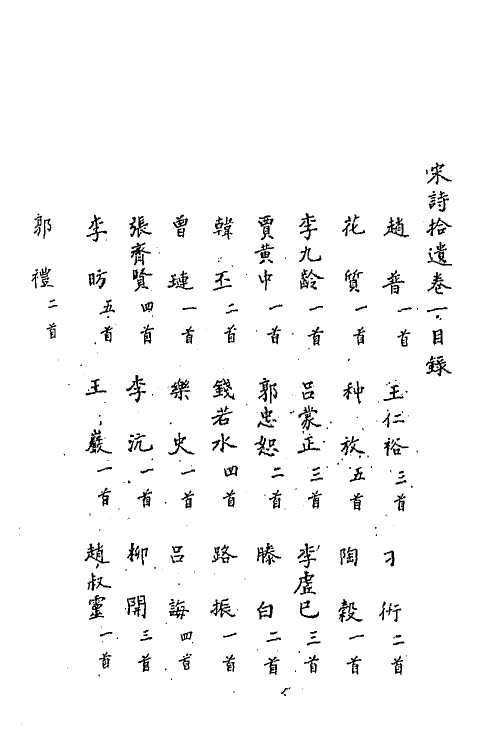 宋詩拾遺卷一目錄
趙普一首 王仁裕三首 刁衎二首
花質一首 种放五首 陶穀一首
李九齡一首 呂蒙正三首 李虛己三首
賈黃中一首 郭忠恕二首 滕白二首
韓丕二首 錢若水四首 路振一首
曾璉一首 樂史一首 呂誨四首
張齊賢四首 李沆一首 柳開三首
李昉五首 王巖一首 趙叔靈一首
郭禮二首